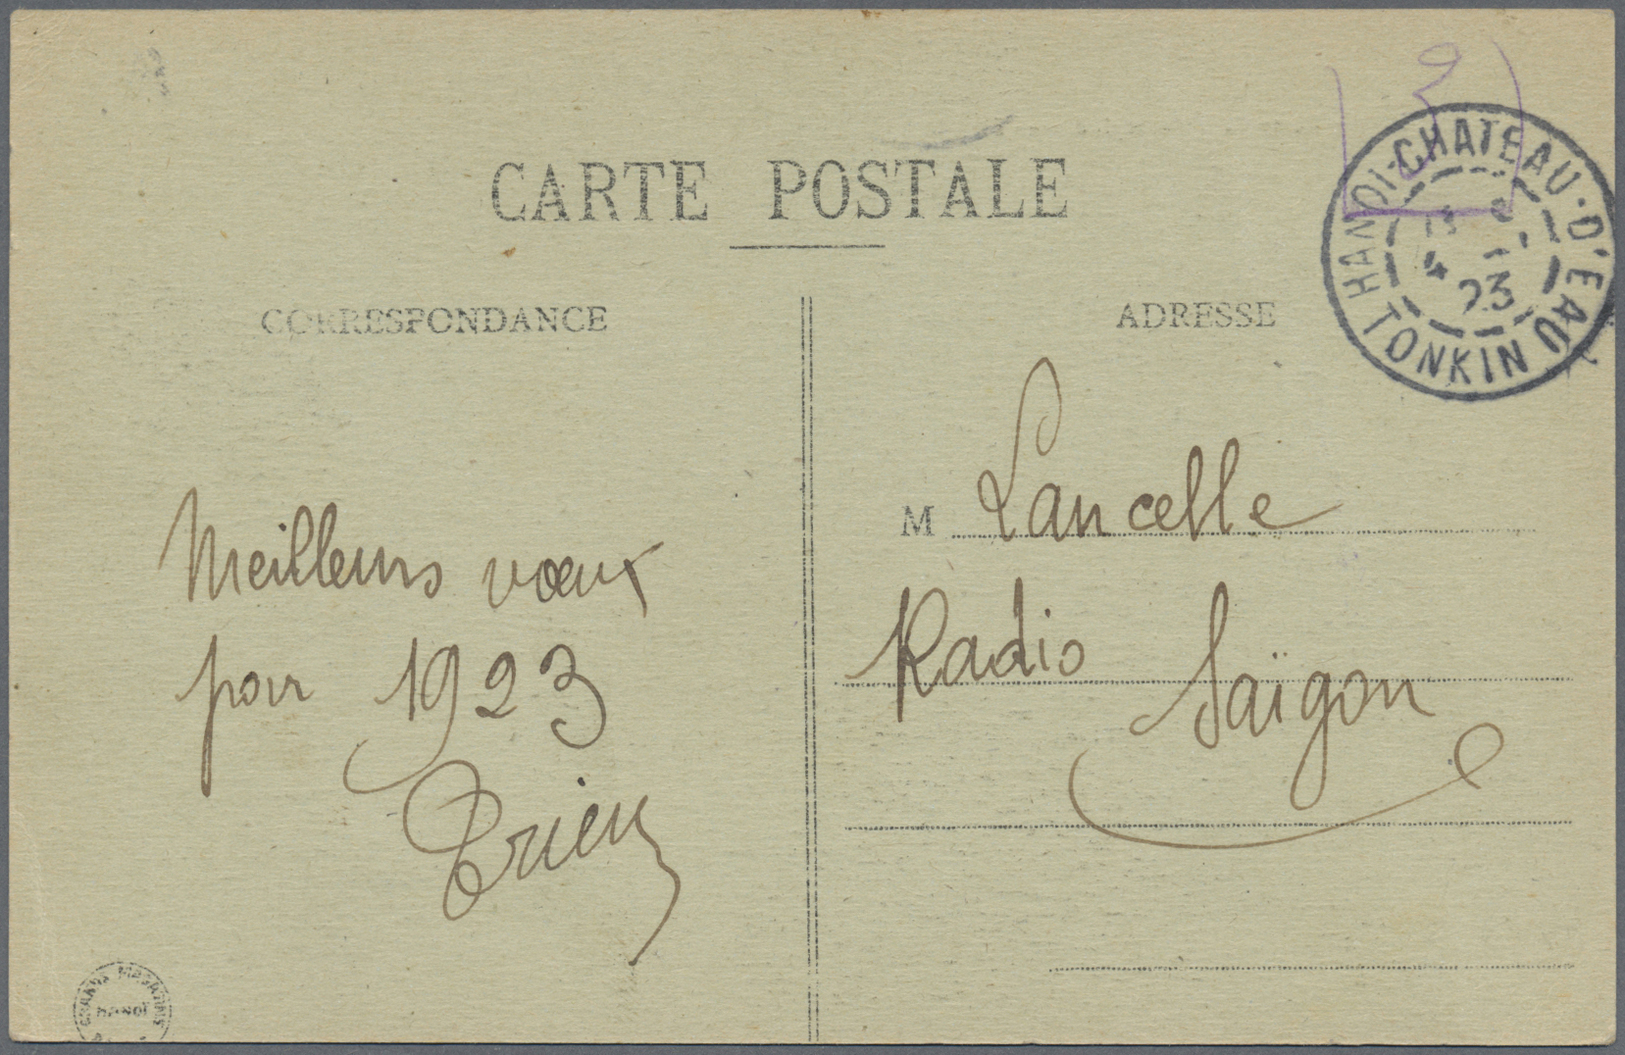 CARTE POSTALE
CORRESPONDANCE
ADRESSE
HANOI-CHATEAU-D'EAU
TONKIN
4
23
Meilleurs vœux
pour 1923
M Lancelle
Radio Saïgon
GRANDS MAGASINS
HANOI